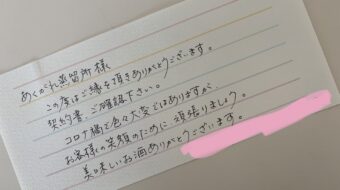 あくがれ蒸留所様
この度はご縁を頂きありがとうございます。
契約書、ご確認下さい。
コロナ禍で色々大変ではありますが、
お客様の笑顔のために頑張りましょう。
美味しいお酒ありがとうございます。